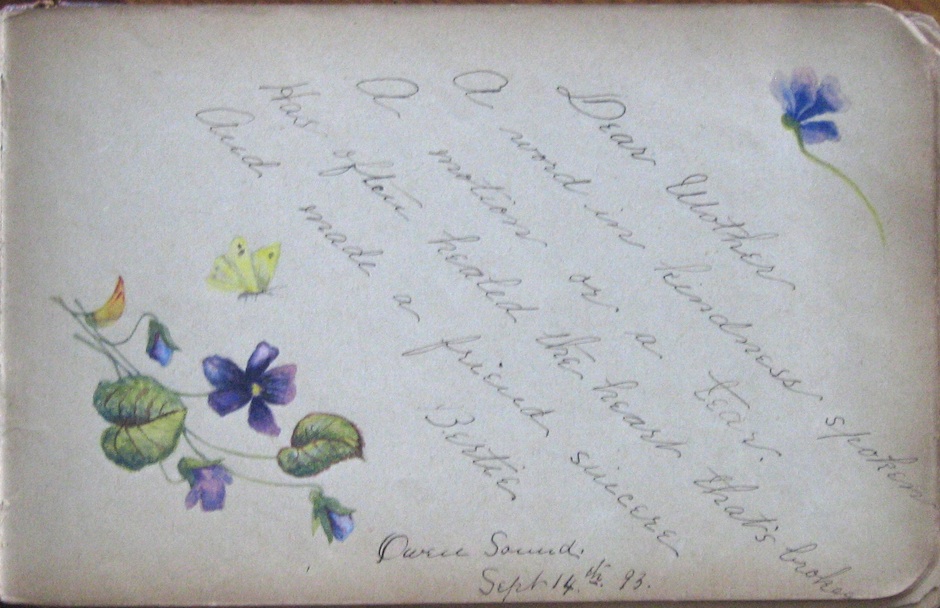 Dear Mother
A word in kindness spoken
A motion or a tear.
Has often healed the heart that's broken
And made a friend sincere
Bertie
Owen Sound.
Sept 14.th 93.